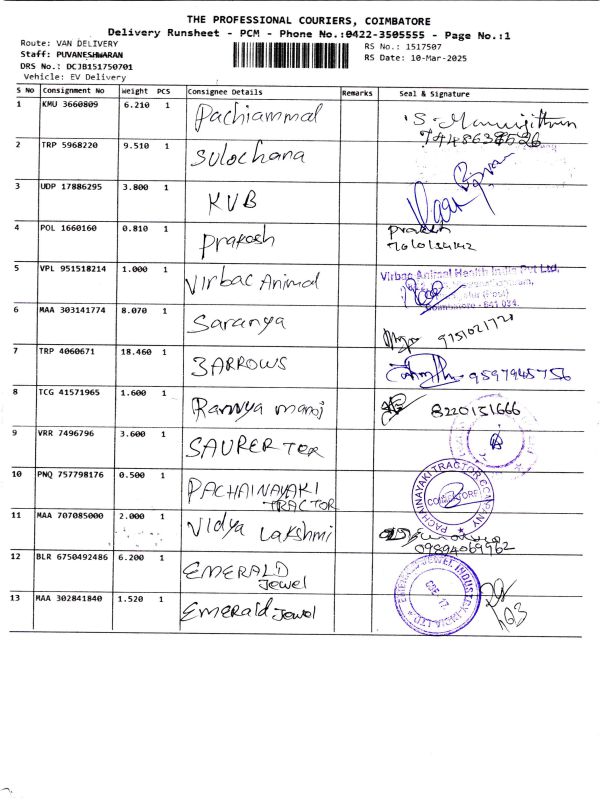 THE PROFESSIONAL COURIERS, COIMBATORE
Delivery Runsheet - PCM - Phone No.:0422-3505555 - Page No.:1
Route: VAN DELIVERY
RS No.: 1517507
Staff: PUVANESHWARAN
RS Date: 10-Mar-2025
DRS No.: DCJB151750701
Vehicle: EV Delivery
S No Consignment No Weight PCS Consignee Details Remarks Seal & Signature
1 KMU 3660809 6.210 1 Pachiammal
2 TRP 5968220 9.510 1 Sulochana
3 UDP 17886295 3.800 1 KVB
4 POL 1660160 0.810 1 Prakash
5 VPL 951518214 1.000 1 Virbac Animal Virbac Animal Health India Pvt Ltd,
Coimbatore - 641 034.
6 MAA 303141774 8.070 1 Saranya 9751021720
7 TRP 4060671 18.460 1 3ARROWS 9597945756
8 TCG 41571965 1.600 1 Ramya manoj 8220151666
9 VRR 7496796 3.600 1 SAURER TEX
10 PNQ 757798176 0.500 1 PACHAINAYAKI TRACTOR PACHAINAYAKI TRACTOR COMPANY
COIMBATORE
11 MAA 707085000 2.000 1 Vidya Lakshmi 09894069962
12 BLR 6750492486 6.200 1 EMERALD Jewel EMERALD JEWEL INDUSTRY INDIA LTD
CBE 17
13 MAA 302841840 1.520 1 Emerald Jewel